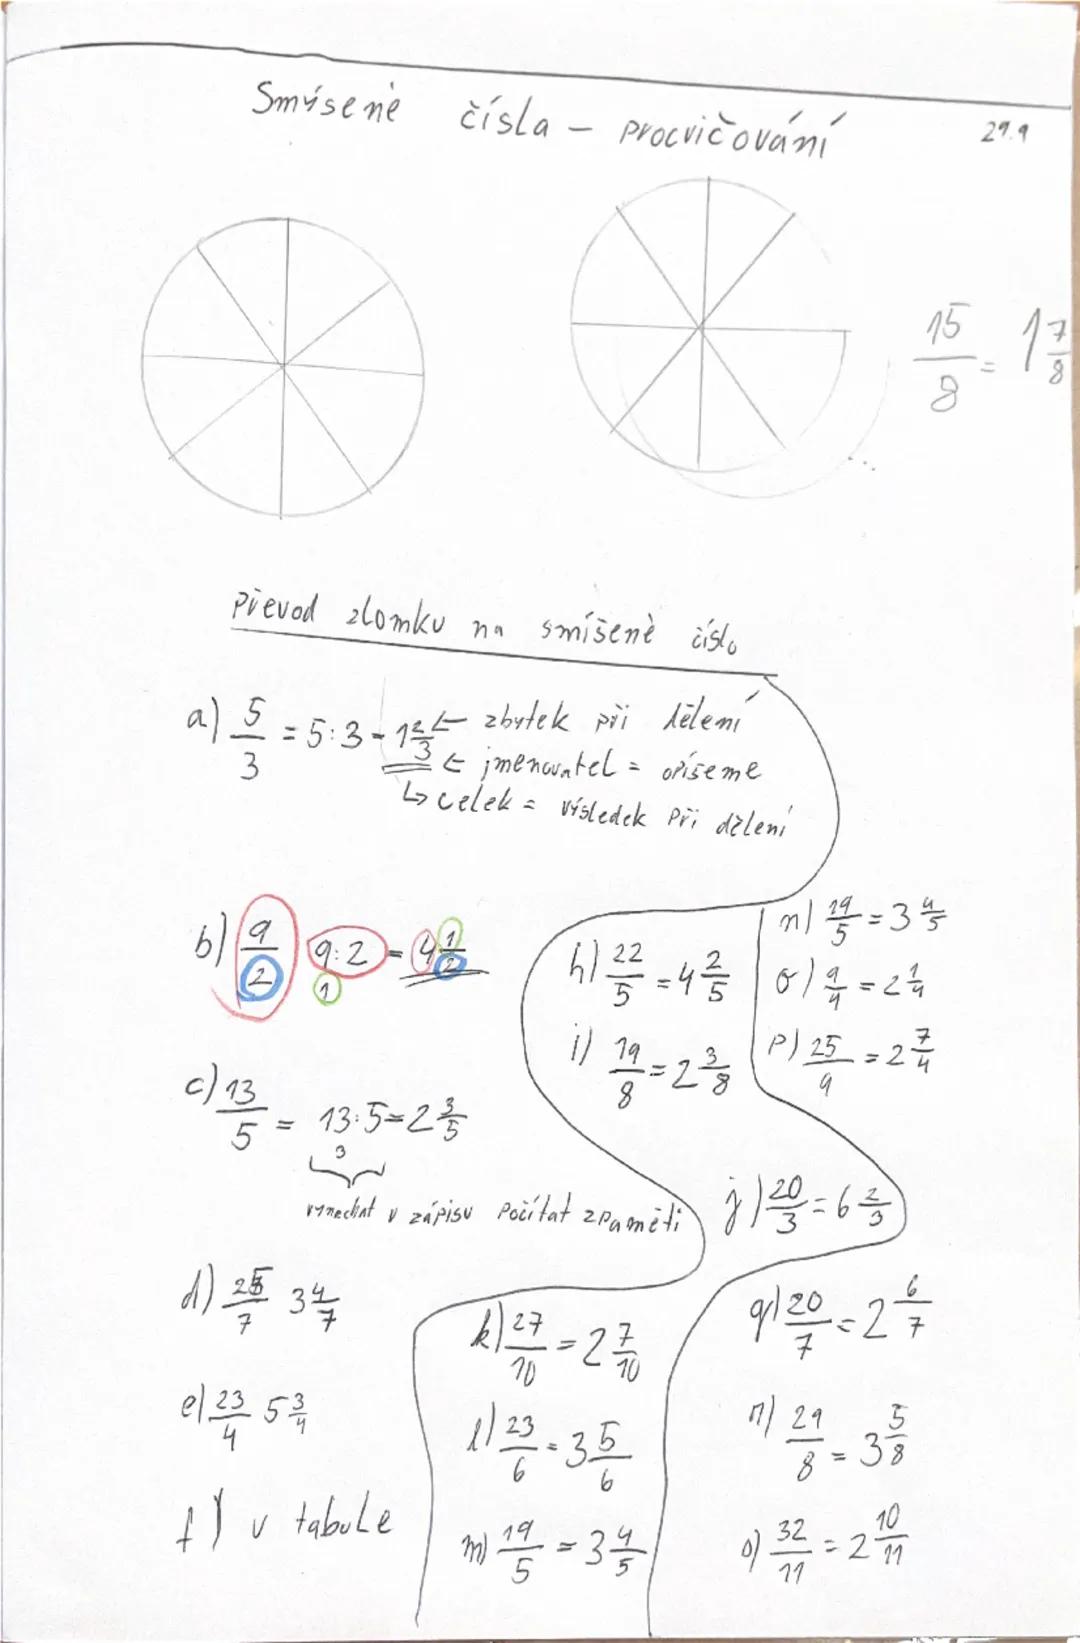 Smýsené čísla – procvičování 29.9
15/8 = 1 7/8
Převod zlomku na smíšené číslo
a) 5/3 = 5:3 = 1 2/3 ← zbytek při dělení
← jmenovatel = opíšeme
↳ celek = výsledek při dělení
b) 9/2 9:2 = 4 1/2
1
c) 13/5 = 13:5 = 2 3/5
3
vynechat v zápisu počítat zpaměti
d) 25/7 3 4/7
e) 23/4 5 3/4
f) v tabule
h) 22/5 = 4 2/5
i) 19/8 = 2 3/8
n) 19/5 = 3 4/5
o) 9/4 = 2 1/4
p) 25/9 = 2 7/4
j) 20/3 = 6 2/3
k) 27/10 = 2 7/10
l) 23/6 = 3 5/6
m) 19/5 = 3 4/5
q) 20/7 = 2 6/7
r) 29/8 = 3 5/8
o) 32/11 = 2 10/11